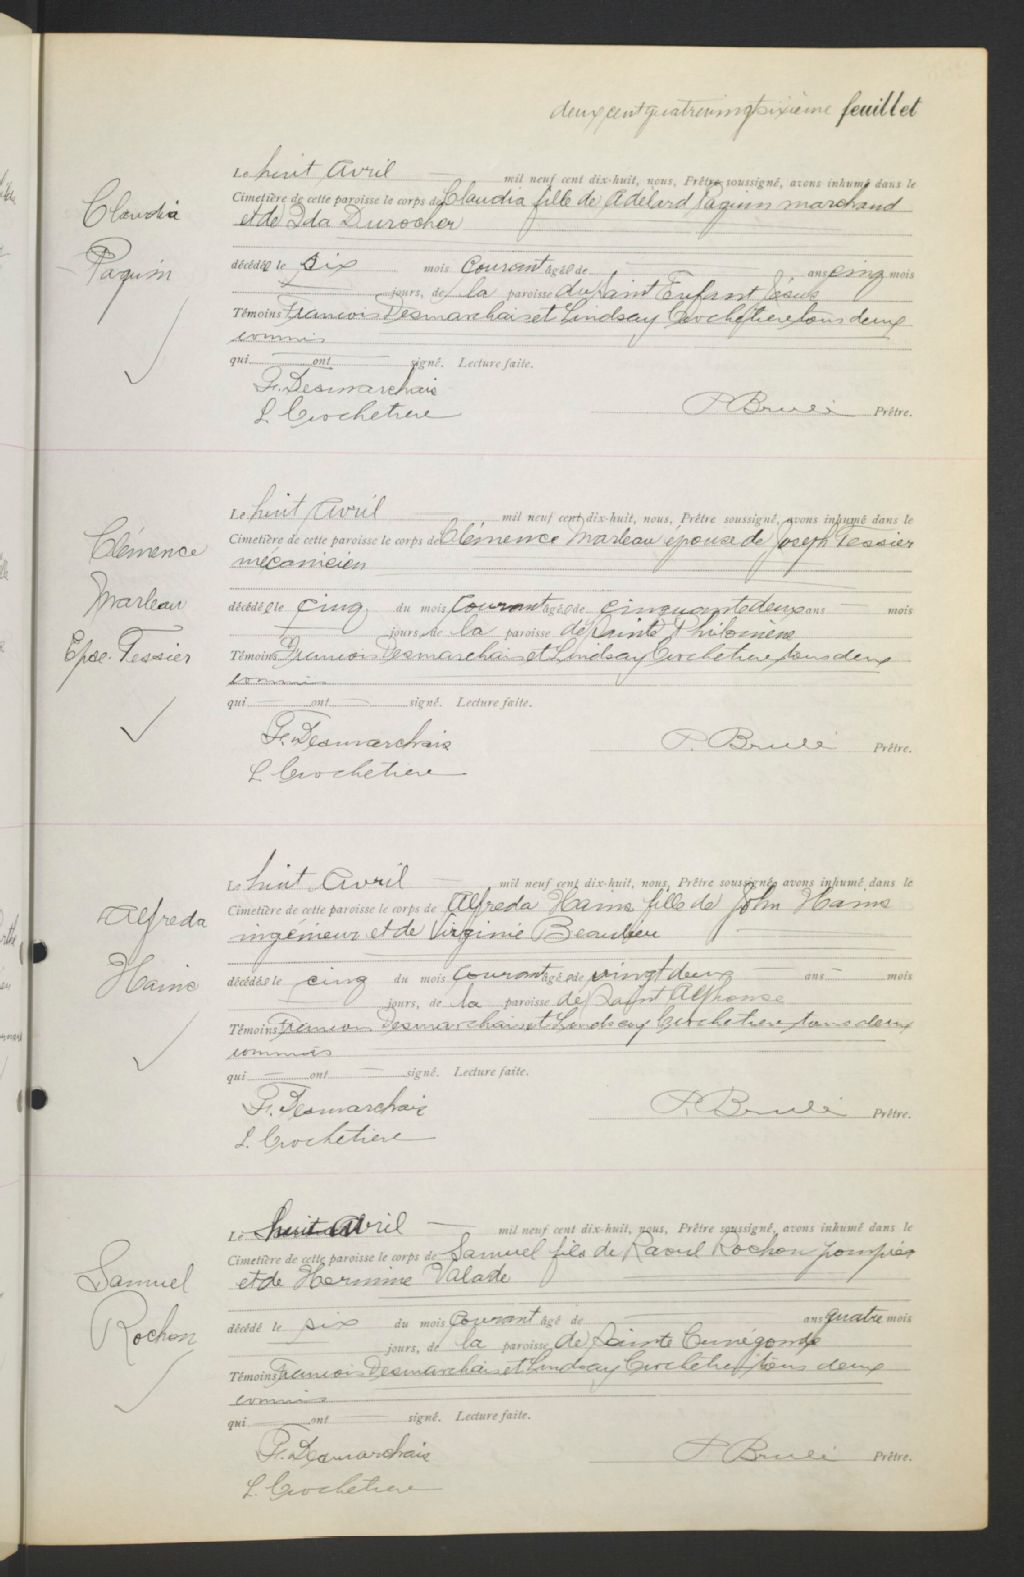 deux cent quatrevingtsixième feuillet
Claudia
Paquin
Le huit Avril mil neuf cent dix-huit, nous, Prêtre soussigné, avons inhumé dans le
Cimetière de cette paroisse le corps de Claudia fille de Adélard Paquin marchand
et de Ida Durocher
décédée le six mois Courant agée de ans cinq mois
jours, de la paroisse du Saint Enfant Jésus
Témoins Francois Desmarchais et Lindsay Crochetiere tous deux
commis
qui ont signé. Lecture faite.
Fr. Desmarchais
L. Crochetiere
P. Brulé Prêtre.
Clémence
Marleau
Epse. Tessier
Le huit Avril mil neuf cent dix-huit, nous, Prêtre soussigné, avons inhumé dans le
Cimetière de cette paroisse le corps de Clémence Marleau épouse de Joseph Tessier
mécanicien
décédée le cinq du mois Courant agée de cinquante deux ans mois
jours de la paroisse de Sainte Philomène
Témoins Francois Desmarchais et Lindsay Crochetiere tous deux
commis
qui ont signé. Lecture faite.
Fr. Desmarchais
L. Crochetiere
P. Brulé Prêtre.
Alfreda
Hains
Le huit Avril mil neuf cent dix-huit, nous, Prêtre soussigné, avons inhumé dans le
Cimetière de cette paroisse le corps de Alfreda Hains fille de John Hains
ingénieur et de Virginie Beaulieu
décédée le cinq du mois Courant agée de vingt deux ans mois
jours, de la paroisse de Saint Alphonse
Témoins Francois Desmarchais et Lindsay Crochetiere tous deux
commis
qui ont signé. Lecture faite.
Fr. Desmarchais
L. Crochetiere
P. Brulé Prêtre.
Samuel
Rochon
Le huit Avril mil neuf cent dix-huit, nous, Prêtre soussigné, avons inhumé dans le
Cimetière de cette paroisse le corps de Samuel fils de Raoul Rochon pompier
et de Hermine Valade
décédé le six du mois Courant âgé de ans quatre mois
jours, de la paroisse de Sainte Cunégonde
Témoins Francois Desmarchais et Lindsay Crochetiere tous deux
commis
qui ont signé. Lecture faite.
Fr. Desmarchais
L. Crochetiere
P. Brulé Prêtre.